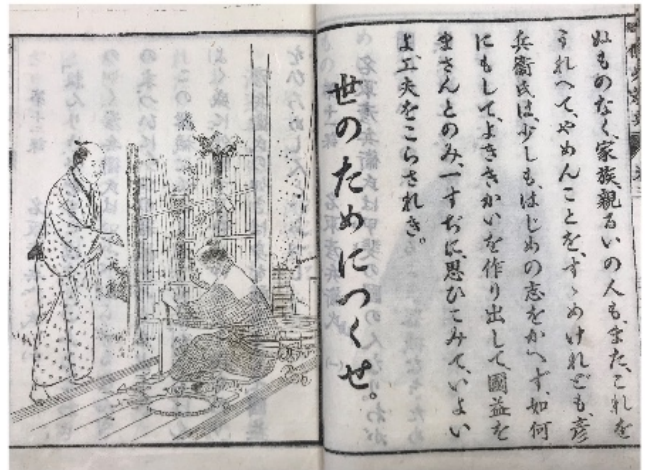 ぬものなく、家族親るいの人もまた、これを
うれへて、やめんことを、すゝめけれども、彦
兵衛氏は、少しも、はじめの志をかへず、如何
にもして、よききかいを作り出して、國益を
まさんとのみ、一すぢに、思ひこみて、いよい
よ、工夫をこらされき。
世のためにつくせ。